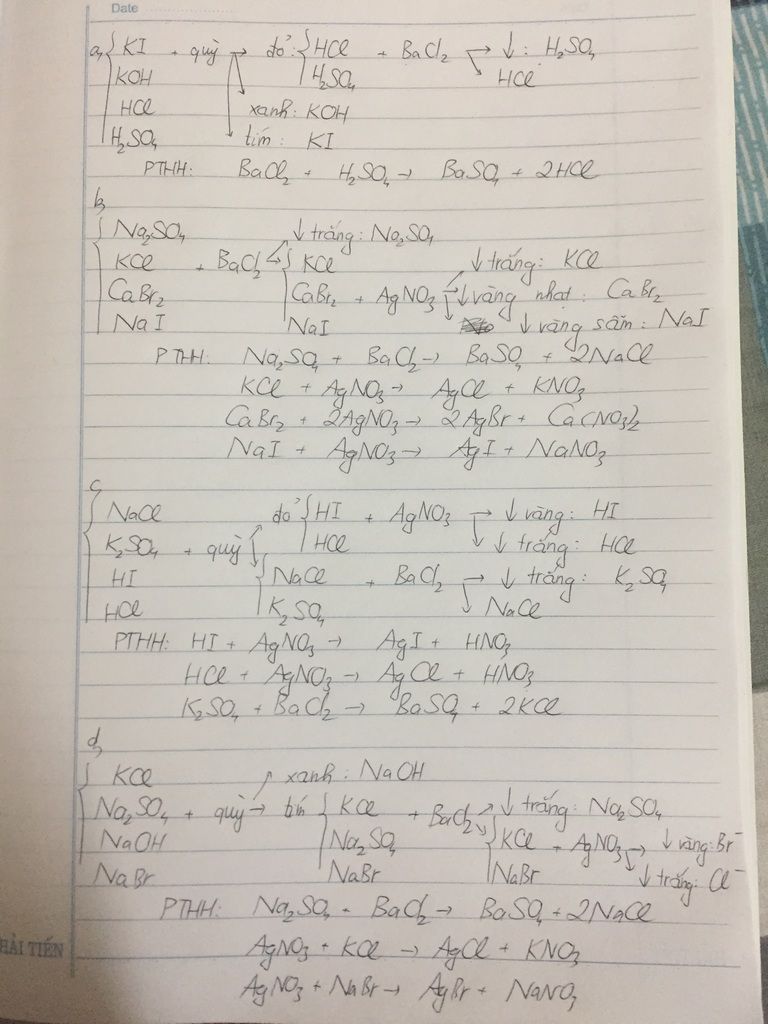 Date
a, KI + quỳ → đỏ: { HCl + BaCl₂ → ↓: H₂SO₄
KOH H₂SO₄ HCl
HCl xanh: KOH
H₂SO₄ tím: KI
PTHH: BaCl₂ + H₂SO₄ → BaSO₄ + 2HCl
b,
Na₂SO₄ ↓ trắng: Na₂SO₄
KCl + BaCl₂ → { KCl ↓ trắng: KCl
CaBr₂ CaBr₂ + AgNO₃ → ↓ vàng nhạt: CaBr₂
NaI NaI ↓ vàng sẫm: NaI
PTHH: Na₂SO₄ + BaCl₂ → BaSO₄ + 2NaCl
KCl + AgNO₃ → AgCl + KNO₃
CaBr₂ + 2AgNO₃ → 2AgBr + Ca(NO₃)₂
NaI + AgNO₃ → AgI + NaNO₃
c,
NaCl đỏ { HI + AgNO₃ → ↓ vàng: HI
K₂SO₄ + quỳ HCl ↓ trắng: HCl
HI { NaCl + BaCl₂ → ↓ trắng: K₂SO₄
HCl K₂SO₄ NaCl
PTHH: HI + AgNO₃ → AgI + HNO₃
HCl + AgNO₃ → AgCl + HNO₃
K₂SO₄ + BaCl₂ → BaSO₄ + 2KCl
d,
KCl xanh: NaOH
Na₂SO₄ + quỳ → tím { KCl + BaCl₂ ↓ trắng: Na₂SO₄
NaOH Na₂SO₄ { KCl + AgNO₃ → ↓ vàng: Br⁻
NaBr NaBr NaBr ↓ trắng: Cl⁻
PTHH: Na₂SO₄ + BaCl₂ → BaSO₄ + 2NaCl
AgNO₃ + KCl → AgCl + KNO₃
HẢI TIẾN
AgNO₃ + NaBr → AgBr + NaNO₃